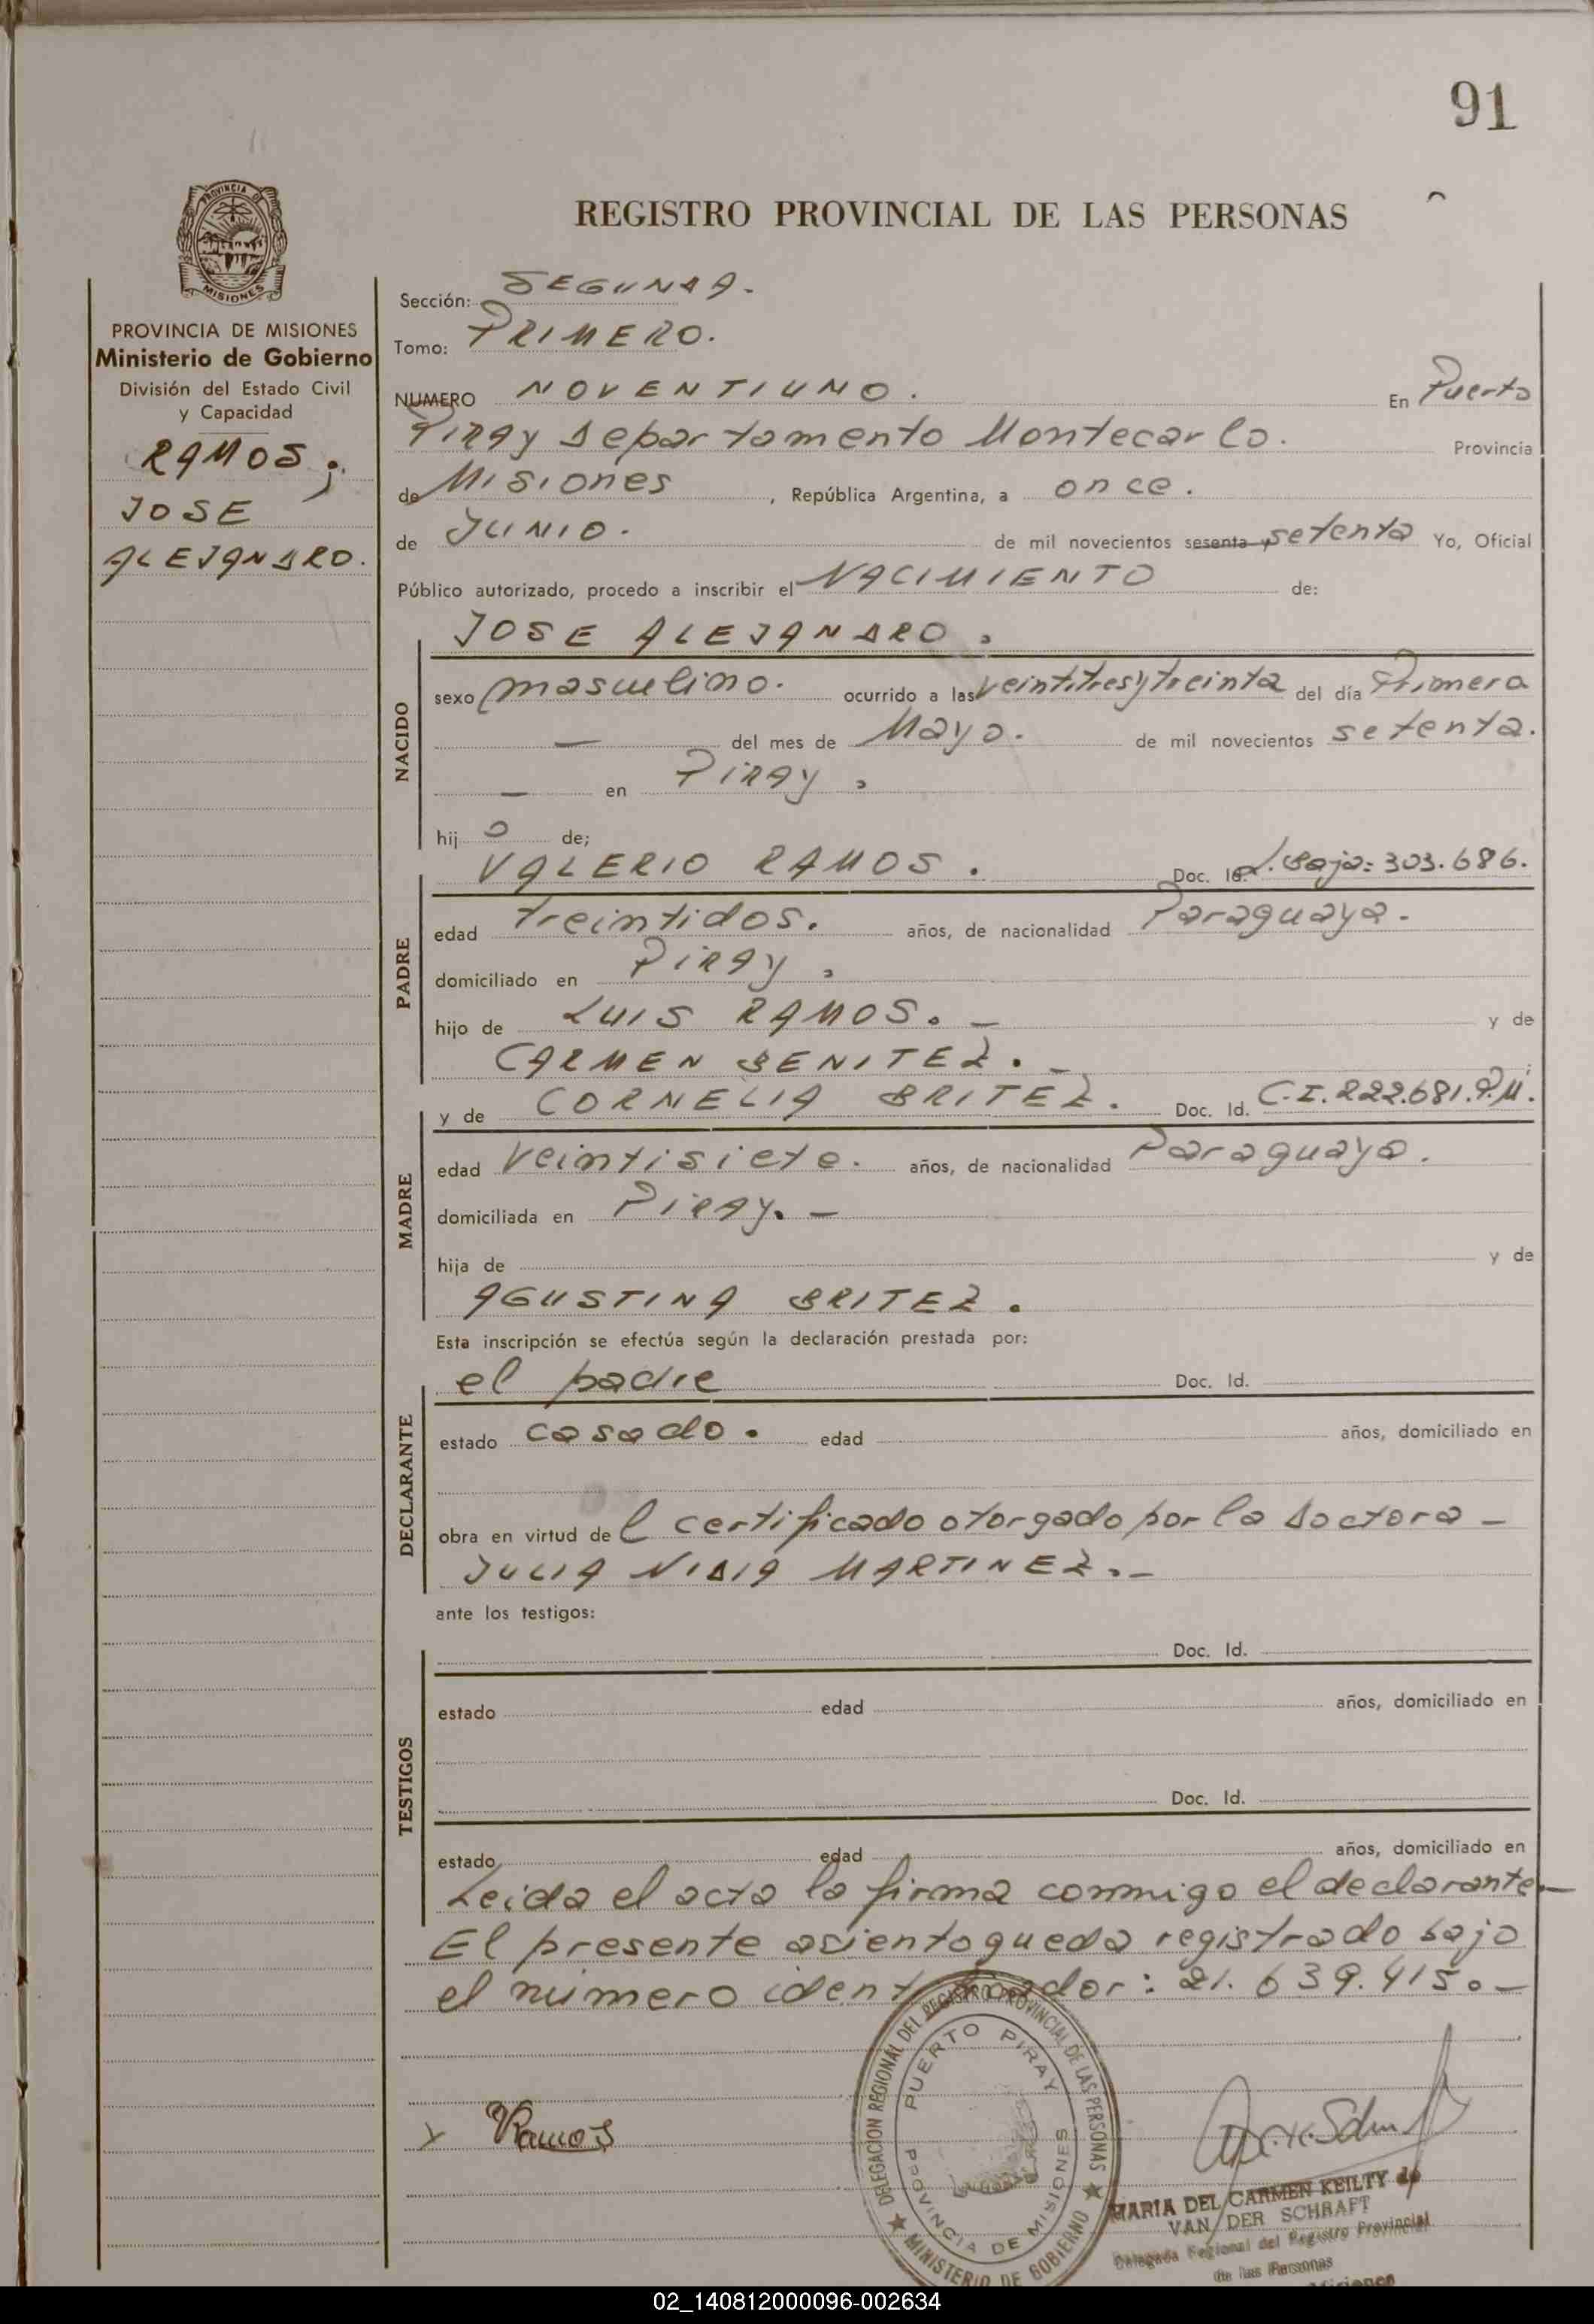 91
REGISTRO PROVINCIAL DE LAS PERSONAS
PROVINCIA DE
MISIONES
PROVINCIA DE MISIONES
Ministerio de Gobierno
División del Estado Civil
y Capacidad
RAMOS;
JOSE
ALEJANDRO.
Sección: SEGUNDA.
Tomo: PRIMERO.
NUMERO NOVENTIUNO. En Puerto
PIRAY Departamento Montecarlo. Provincia
de Misiones, República Argentina, a once.
de JUNIO. de mil novecientos sesenta y setenta Yo, Oficial
Público autorizado, procedo a inscribir el NACIMIENTO de:
JOSE ALEJANDRO.
NACIDO
sexo masculino. ocurrido a las veintitresytreinta del día Primero
— del mes de Mayo. de mil novecientos setenta.
— en PIRAY.
hijo de;
VALERIO RAMOS. Doc. Id. L. Baja: 303.686.
PADRE
edad treintidos. años, de nacionalidad Paraguaya.
domiciliado en PIRAY.
hijo de LUIS RAMOS. — y de
CARMEN BENITEZ. —
y de CORNELIA BRITEZ. Doc. Id. C.I. 222.681.P.M.
MADRE
edad veintisiete. años, de nacionalidad Paraguaya.
domiciliada en PIRAY. —
hija de y de
AGUSTINA BRITEZ.
Esta inscripción se efectúa según la declaración prestada por:
el padre Doc. Id.
DECLARANTE
estado casado. edad años, domiciliado en
obra en virtud del certificado otorgado por la Doctora —
JULIA NIDIA MARTINEZ. —
ante los testigos:
Doc. Id.
TESTIGOS
estado edad años, domiciliado en
Doc. Id.
estado edad años, domiciliado en
Leida el acta la firma conmigo el declarante. —
El presente asiento queda registrado bajo
el número identificador: 21.639.415. —
x VRamos
DELEGACION REGIONAL DEL REGISTRO PROVINCIAL DE LAS PERSONAS
PUERTO PIRAY
PROVINCIA DE MISIONES
MINISTERIO DE GOBIERNO
MARIA DEL CARMEN KEILTY de
VAN DER SCHRAFT
Delegada Regional del Registro Provincial
de las Personas
02_140812000096-002634